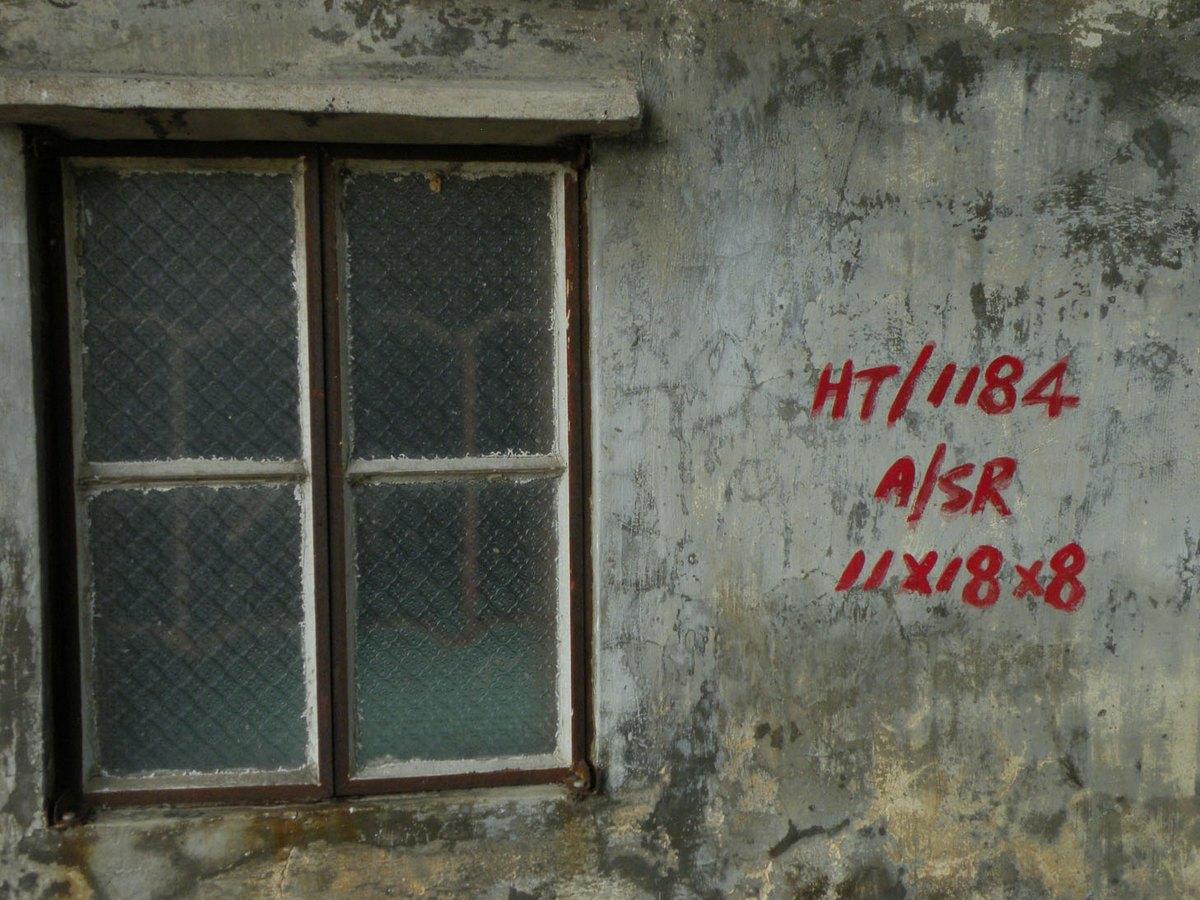 HT/1184
A/SR
11x18x8